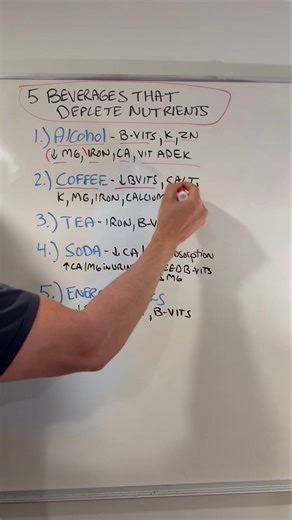 5 BEVERAGES THAT
DEPLETE NUTRIENTS
1.) Alcohol - B-VITS, K, ZN
(↓ MG, IRON, CA, VIT ADEK
2.) COFFEE - ↓BVITS,
K, MG, IRON, CALCIUM
3.) TEA - IRON, B-V
4.) SODA - ↓CA
↑CA/MG IN URINE B-VITS
↓MG
5.)
, B-VITS